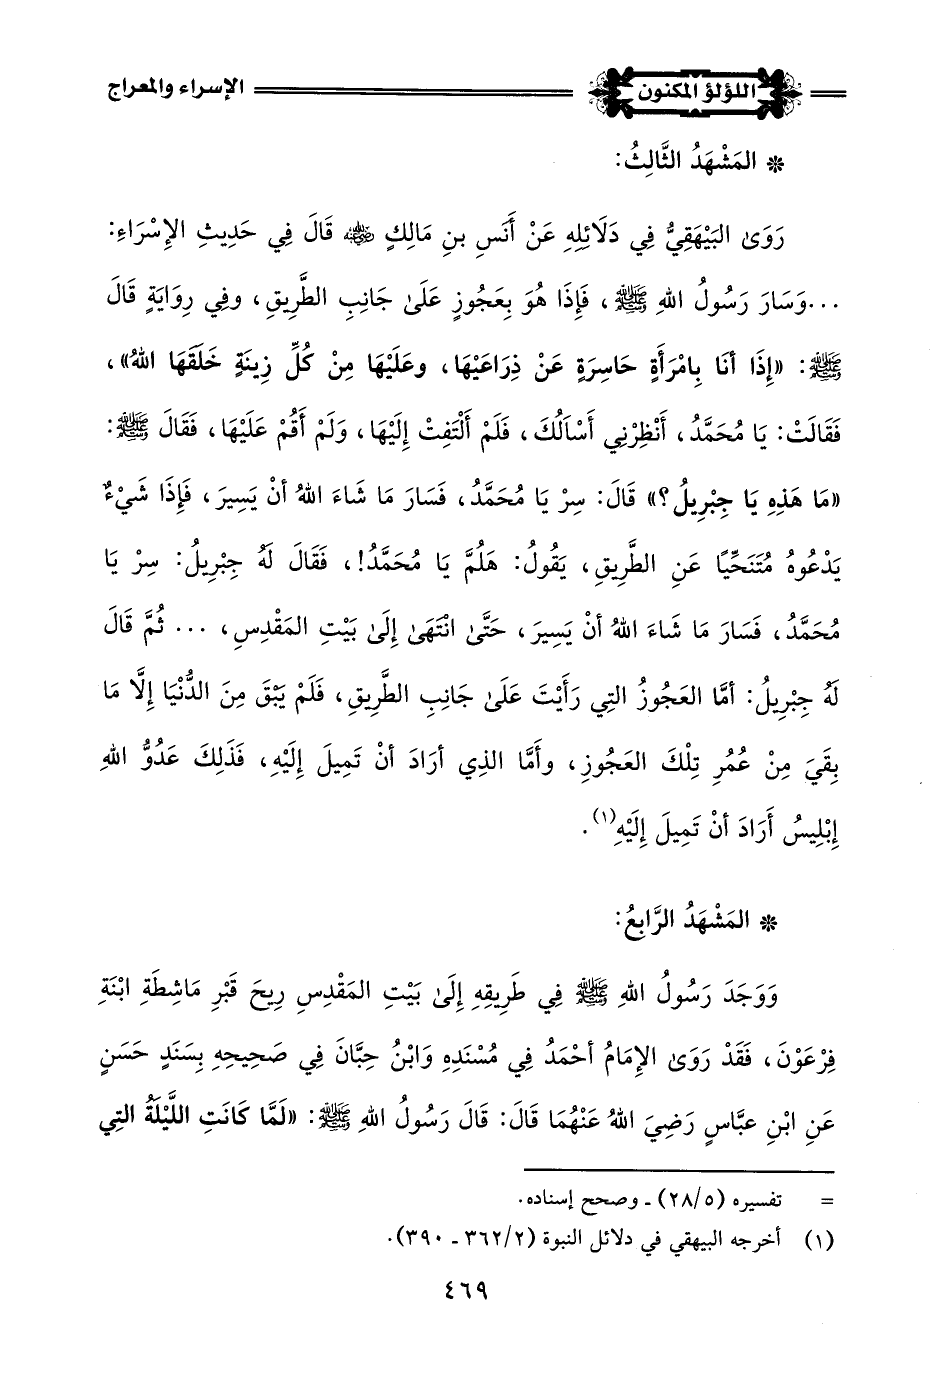 اللؤلؤ المكنون الإسراء والمعراج
* المَشْهَدُ الثَّالِثُ:
رَوَىٰ البَيْهَقِيُّ فِي دَلَائِلِهِ عَنْ أَنَسِ بنِ مَالِكٍ رضي الله عنه قَالَ فِي حَدِيثِ الإِسْرَاءِ:
...وَسَارَ رَسُولُ اللهِ ﷺ، فَإِذَا هُوَ بِعَجُوزٍ عَلَىٰ جَانِبِ الطَّرِيقِ، وفِي رِوَايَةٍ قَالَ
ﷺ: «إِذَا أنَا بِامْرَأَةٍ حَاسِرَةٍ عَنْ ذِرَاعَيْهَا، وعَلَيْهَا مِنْ كُلِّ زِينَةٍ خَلَقَهَا اللهُ»،
فَقَالَتْ: يَا مُحَمَّدُ، أَنْظِرْنِي أَسْأَلُكَ، فَلَمْ أَلْتَفِتْ إِلَيْهَا، ولَمْ أقُمْ عَلَيْهَا، فَقَالَ ﷺ:
«مَا هَذِهِ يَا جِبْرِيلُ؟» قَالَ: سِرْ يَا مُحَمَّدُ، فَسَارَ مَا شَاءَ اللهُ أنْ يَسِيرَ، فَإِذَا شَيْءٌ
يَدْعُوهُ مُتَنَحِّيًا عَنِ الطَّرِيقِ، يَقُولُ: هَلُمَّ يَا مُحَمَّدُ!، فَقَالَ لَهُ جِبْرِيلُ: سِرْ يَا
مُحَمَّدُ، فَسَارَ مَا شَاءَ اللهُ أنْ يَسِيرَ، حَتَّىٰ انْتَهَىٰ إِلَىٰ بَيْتِ المَقْدِسِ، ... ثُمَّ قَالَ
لَهُ جِبْرِيلُ: أمَّا العَجُوزُ التِي رَأَيْتَ عَلَىٰ جَانِبِ الطَّرِيقِ، فَلَمْ يَبْقَ مِنَ الدُّنْيَا إِلَّا مَا
بِقَيَ مِنْ عُمُرِ تِلْكَ العَجُوزِ، وأَمَّا الذِي أرَادَ أنْ تَمِيلَ إِلَيْهِ، فَذَلِكَ عَدُوُّ اللهِ
إِبْلِيسُ أَرَادَ أنْ تَمِيلَ إِلَيْهِ(١).
* المَشْهَدُ الرَّابِعُ:
وَوَجَدَ رَسُولُ اللهِ ﷺ فِي طَرِيقِهِ إِلَىٰ بَيْتِ المَقْدِسِ رِيحَ قَبْرِ مَاشِطَةِ ابْنَةِ
فِرْعَوْنَ، فَقَدْ رَوَىٰ الإِمَامُ أحْمَدُ فِي مُسْنَدِهِ وَابْنُ حِبَّانَ فِي صَحِيحِهِ بِسَنَدٍ حَسَنٍ
عَنِ ابْنِ عبَّاسٍ رَضِيَ اللهُ عَنْهُمَا قَالَ: قَالَ رَسُولُ اللهِ ﷺ: «لَمَّا كَانَتِ اللَّيْلَةُ التِي
= تفسيره (٥/ ٢٨) ـ وصحح إسناده.
(١) أخرجه البيهقي في دلائل النبوة (٢/ ٣٦٢ ـ ٣٩٠).
٤٦٩